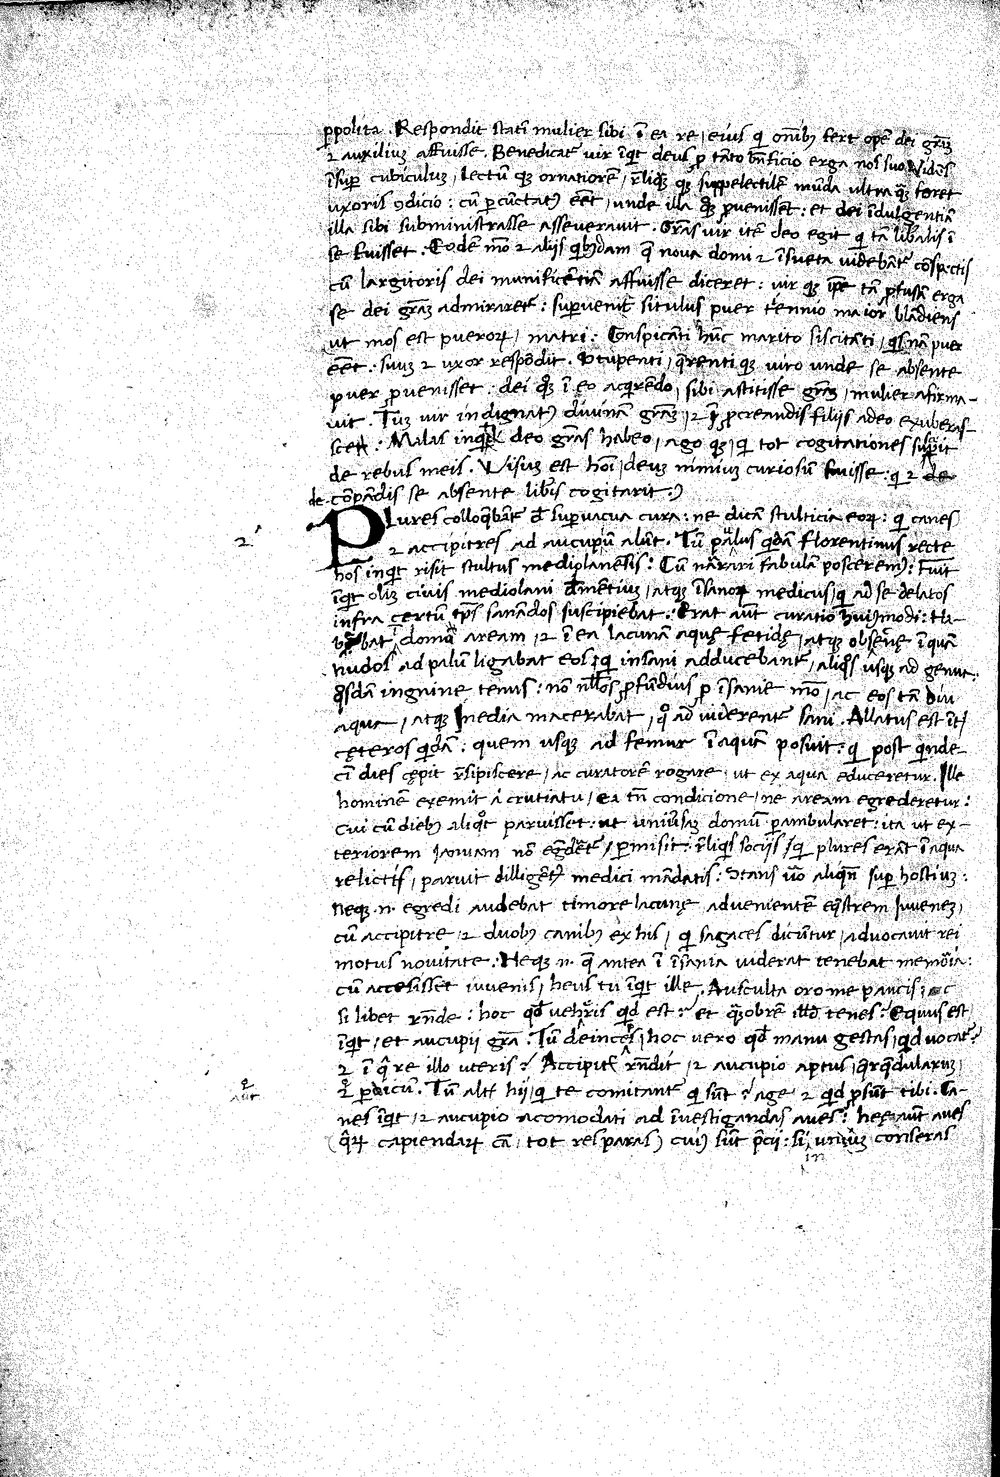 ꝑpolita. Respondit statī mulier sibi ī ea re, eius q̄ oībꝰ fert opē dei grām
⁊ auxiliuꝫ affuisse. Benedicat᷑ vir īqt deus ꝓ tāto bn̄ficio erga nos suo. Vidēs
īsuꝑ cubiculuꝫ, lectū qꝫ ornatiorē, reliq̄ qꝫ suppelectilē mūda ultra q̄ꝫ foret
uxoris ꝯdicio: cū ꝑcūctatꝰ eēt, unde illa q̊ꝫ ꝓvenissent: et dei īdulgentiā
illa sibi subministrasse asseveravit. Grās vir itē deo egit q̄ tā liberalis ī
se fuisset. Eodē mō ⁊ aliis qbꝰdam que nova domi ⁊ īsueta videbāt᷑ cōspectis
cū largitoris dei munificētiā affuisse diceret: vir qꝫ ipse tā ꝓfusā erga
se dei grām admiraret᷑: supervenit situlus puer tennio maior blādiens
ut mos est pueroꝝ, matri: Conspicāti hūc marito siscitāti, qs nā puer
eēt: suuꝫ ⁊ uxor respōdit. Stupenti, q̄renti qꝫ viro unde se absente
puer ꝓvenisset: dei q̊ꝫ ī eo acq̄rēdo, sibi astitisse grām, mulier afirma-
vit. Tuꝫ vir indignatꝰ divinā grām, ⁊ ī ꝓcreandis filiis adeo exuberas-
sce: Malas inqt deo grās habeo, ago qꝫ, q̄ tot cogitationes suscipit
de rebus meis. Visuꝫ est hoī, deuꝫ nimiuꝫ curiosū fuisse: q̄ ⁊ de
de cōpādis se absente libis cogitarit.
Plures colloq̄bāt᷑ de supervacua cura: ne dicā stulticia eoꝝ: q̄ canes
2. ⁊ accipitres ad aucupiū alūt. Tū paulus qdā florentinus recte
hos inqt risit stultus mediolanēsis: Cū narrari fabulā posceremꝰ: fuit
īqt oliꝫ civis mediolani demētiuꝫ, atqꝫ īsanoꝝ medicus, q̄ ad se delatos
infra certū tp̄s sanādos suscipiebat. Erat aūt curatio huiꝰmodi: Ha-
bebat domī aream, ⁊ ī ea lacunā aquę fetidę, atqꝫ obscenę ī quā
nudos ad palū ligabat eos, q̄ insani adducebant᷑, aliq̊s usqꝫ ad genua:
q̊sdā ingnine tenus: nōnullos ꝓfūdius ꝓ īsanie mō, ac eos tā diu
aqua, atqꝫ inedia macerabat, q̊ ad viderent᷑ sani. Allatus est īt᷑
cęteros qdā: quem usqꝫ ad femur ī aquā posuit: q̄ post qnde-
cī dies cępit resipiscere, ac curatorē rogare, ut ex aqua educeretur. Ille
hominē exemit a crutiatu, ea tn̄ condicione, ne aream egrederetur:
Cui cū diebꝰ aliq̊t paruisset: ut universaꝫ domū ꝑambularet: ita ut ex-
teriorem ianuam nō egrēderet᷑, ꝑmisit: reliqis sociis, q̄ plures erāt ī aqua
relictis, paruit diligēt᷑ medici mādatis: Stans v̊o aliqn̄ suꝑ hostiuꝫ:
Neqꝫ .n. egredi audebat timore lacunę advenientē eq̄strem iuvenem,
cū accipitre, ⁊ duobꝰ canibꝰ ex his, q̄ sagaces dicūtur, advocavit rei
motus novitate. Neqꝫ .n. que antea ī īsania viderat tenebat memoria:
cū accesisset iuvenis, heus tu īqt ille, Ausculta oro me paucis: ac
si libet rn̄de: hoc qd vehēris qd est? et quaꝫobrē illud tenes? Equus est
īqt, et aucupii grā. Tū deinceps, hoc vero qd manu gestas, qd vocat᷑?
⁊ ī q̄ re illo uteris? Accipiter rn̄dit, ⁊ aucupio aptus, q̄rq̄dularuꝫ,
⁊ ꝑdicū. Tū alter hii, q̄ te comitant᷑ q̄ sūt? age ⁊ qd ꝓsūt tibi. Ca-
⁊
aut
nes īqt, ⁊ aucupio acomodati ad īvestigandas aves: hęę aūt aves
q̄ꝝ capiendaꝝ cā, tot res paras, cuiꝰ sūt p̄cii: si, unuꝫ conseras
in